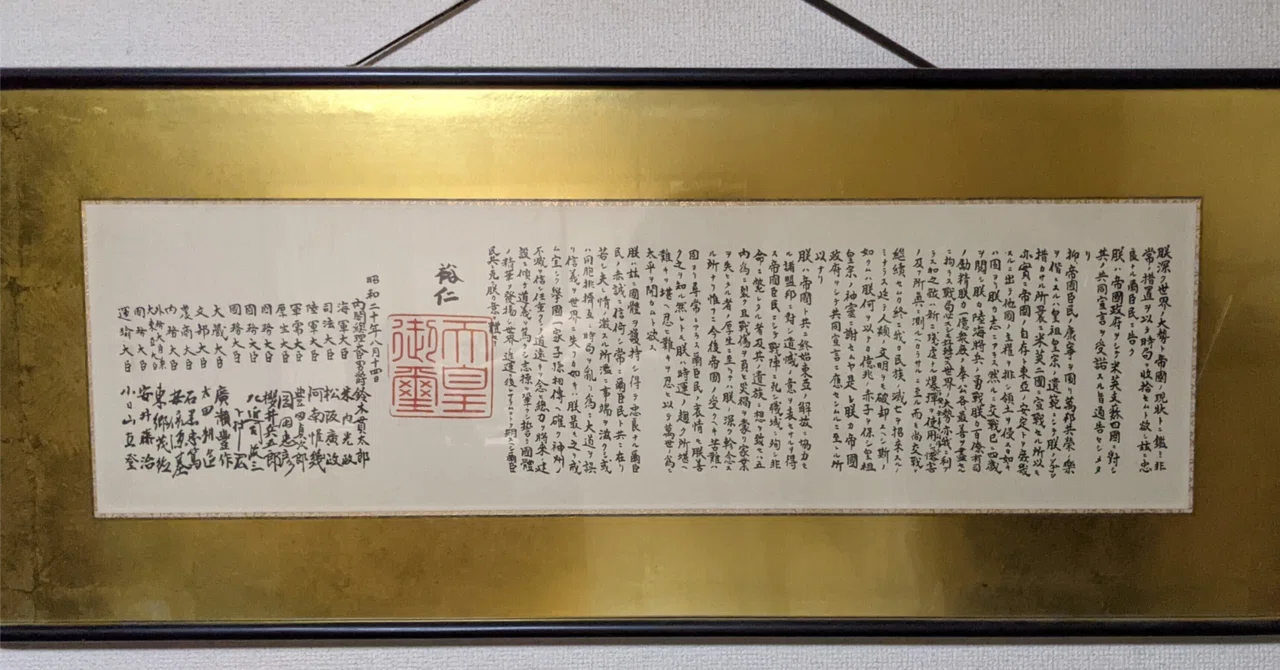 朕深ク世界ノ大勢ト帝國ノ現状トニ鑑ミ非
常ノ措置ヲ以テ時局ヲ收拾セムト欲シ茲ニ忠
良ナル爾臣民ニ告ク
朕ハ帝國政府ヲシテ米英支蘇四國ニ對シ
其ノ共同宣言ヲ受諾スル旨通告セシメタ
リ
抑帝國臣民ノ康寧ヲ圖リ萬邦共榮ノ樂
ヲ偕ニスルハ皇祖皇宗ノ遺範ニシテ朕ノ拳々
措カサル所曩ニ米英二國ニ宣戰セル所以モ
亦實ニ帝國ノ自存ト東亞ノ安定トヲ庶幾
スルニ出テ他國ノ主權ヲ排シ領土ヲ侵スカ如キ
ハ固ヨリ朕カ志ニアラス然ルニ交戰已ニ四歳
ヲ閲シ朕カ陸海將兵ノ勇戰朕カ百僚有司
ノ勵精朕カ一億衆庶ノ奉公各最善ヲ盡セル
ニ拘ラス戰局必スシモ好轉セス世界ノ大勢亦我ニ利
アラス加之敵ハ新ニ殘虐ナル爆彈ヲ使用シ惨害
ノ及フ所眞ニ測ルヘカラサルニ至ル而モ尚交戰ヲ
繼續セムカ終ニ我カ民族ノ滅亡ヲ招來スルノ
ミナラス延テ人類ノ文明ヲモ破却スヘシ斯ノ
如クムハ朕何ヲ以テカ億兆ノ赤子ヲ保シ皇祖
皇宗ノ神靈ニ謝セムヤ是レ朕カ帝國
政府ヲシテ共同宣言ニ應セシムルニ至レル所
以ナリ
朕ハ帝國ト共ニ終始東亞ノ解放ニ協力セ
ル諸盟邦ニ對シ遺憾ノ意ヲ表セサルヲ得
ス帝國臣民ニシテ戰陣ニ死シ職域ニ殉シ非
命ニ斃レタル者及其ノ遺族ニ想ヲ致セハ五
内爲ニ裂ク且戰傷ヲ負ヒ災禍ヲ蒙リ家業
ヲ失ヒタル者ノ厚生ニ至リテハ朕ノ深ク軫念ス
ル所ナリ惟フニ今後帝國ノ受クヘキ苦難
ハ固ヨリ尋常ニアラス爾臣民ノ衷情モ朕善
ク之ヲ知ル然レトモ朕ハ時運ノ趨ク所堪ヘ
難キヲ堪ヘ忍ヒ難キヲ忍ヒ以テ萬世ノ爲ニ
太平ヲ開カムト欲ス
朕ハ茲ニ國體ヲ護持シ得テ忠良ナル爾臣
民ノ赤誠ニ信倚シ常ニ爾臣民ト共ニ在リ
若シ夫レ情ノ激スル所濫ニ事端ヲ滋クシ或
ハ同胞排擠互ニ時局ヲ亂リ爲ニ大道ヲ誤
リ信義ヲ世界ニ失フカ如キハ朕最モ之ヲ戒
ム宜シク擧國一家子孫相傳ヘ確ク神州ノ
不滅ヲ信シ任重クシテ道遠キヲ念ヒ總力ヲ將來ノ建
設ニ傾ケ道義ヲ篤クシ志操ヲ鞏クシ誓テ國體
ノ精華ヲ發揚シ世界ノ進運ニ後レサラムコトヲ期スヘシ爾臣
民其レ克ク朕カ意ヲ體セヨ
裕仁
天皇
御璽
昭和二十年八月十四日
内閣總理大臣男爵鈴木貫太郎
海軍大臣 米内光政
司法大臣 松阪廣政
陸軍大臣 阿南惟幾
軍需大臣 豊田貞次郎
厚生大臣 岡田忠彦
國務大臣 櫻井兵五郎
國務大臣 左近司政三
國務大臣 下村宏
大藏大臣 廣瀬豊作
文部大臣 太田耕造
農商大臣 石黒忠篤
内務大臣 安倍源基
外務大臣兼大東亞大臣 東郷茂徳
國務大臣 安井藤治
運輸大臣 小日山直登